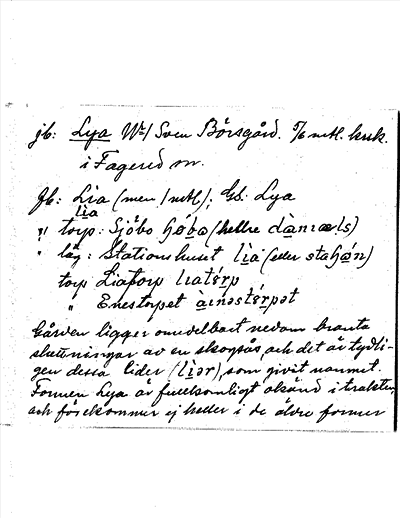 jb: Lya Wr/ Sven Börsgård. 7/6 mtl. krk.
i Fagered sn.
Jb: Lia (men / mtl); Gb: Lya
lìa
" torp: Sjöbo ɧø̀bo (hellre dànɪæls)
" läg: Stationshuset lìa (eller staɧón)
torp Liatorp lɪatórp
" Enestorpet àɪnəstórpət
Gården ligger omedelbart nedom branta
sluttningar av en skogsås, och det är tydli-
gen dessa lider (lìər), som givit namnet.
Formen Lya är fullkomligt okänd i trakten,
och förekommer ej heller i de äldre former